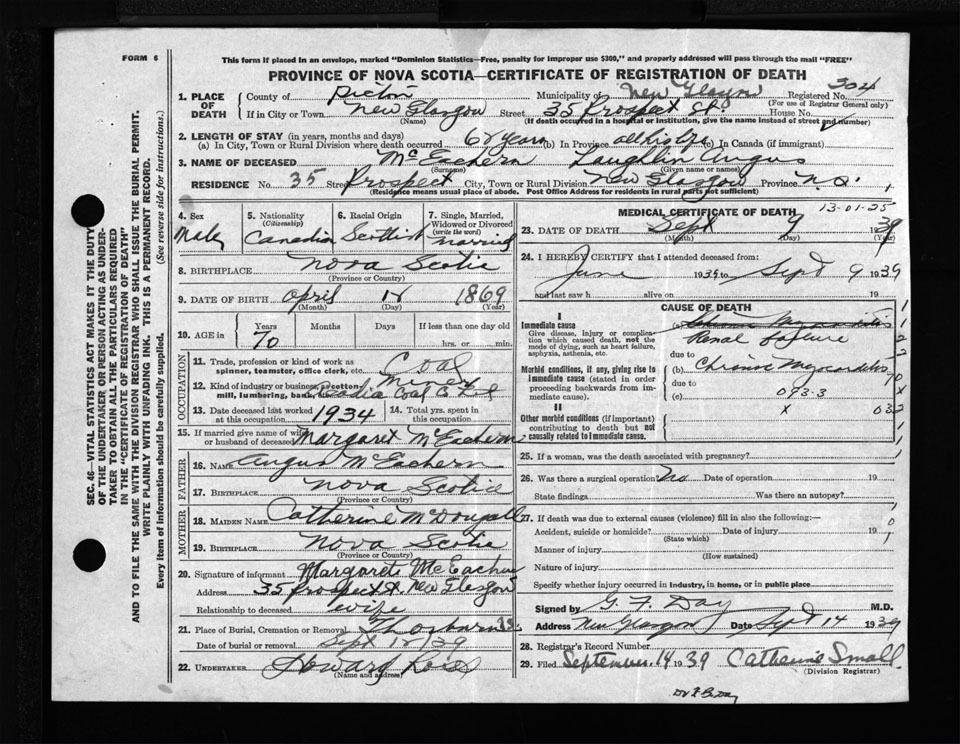 FORM 6
This form if placed in an envelope, marked "Dominion Statistics—Free, penalty for improper use $300," and properly addressed will pass through the mail "FREE"
PROVINCE OF NOVA SCOTIA—CERTIFICATE OF REGISTRATION OF DEATH
1. PLACE OF DEATH
County of Pictou Municipality of New Glasgow Registered No. 304
(For use of Registrar General only)
If in City or Town New Glasgow Street 35 Prospect St. House No.
(Name) (If death occurred in a hospital or institution, give the name instead of street and number)
2. LENGTH OF STAY (in years, months and days)
(a) In City, Town or Rural Division where death occurred years (b) In Province all his life (c) In Canada (if immigrant)
3. NAME OF DECEASED McEachern Laughlin Angus
(Surname) (Given name or names)
RESIDENCE No. 35 Street Prospect City, Town or Rural Division New Glasgow Province N.S.
(Residence means usual place of abode. Post Office Address for residents in rural parts not sufficient)
4. Sex Male
5. Nationality (Citizenship) Canadian
6. Racial Origin Scottish
7. Single, Married, Widowed or Divorced (write the word) married
8. BIRTHPLACE Nova Scotia
(Province or Country)
9. DATE OF BIRTH April 1869
(Month) (Day) (Year)
10. AGE in Years 70 Months Days If less than one day old hrs. or min.
OCCUPATION
11. Trade, profession or kind of work as spinner, teamster, office clerk, etc. Coal Miner
12. Kind of industry or business, as cotton mill, lumbering, bank, etc. Acadia Coal Co Ltd
13. Date deceased last worked at this occupation 1934
14. Total yrs. spent in this occupation
15. If married give name of wife or husband of deceased Margaret McEachern
FATHER
16. NAME Angus McEachern
17. BIRTHPLACE Nova Scotia
(Province or Country)
MOTHER
18. MAIDEN NAME Catherine McDougall
19. BIRTHPLACE Nova Scotia
(Province or Country)
20. Signature of informant Margaret McEachern
Address 35 Prospect St. New Glasgow
Relationship to deceased wife
21. Place of Burial, Cremation or Removal Thorburn N.S.
Date of burial or removal Sept /39
22. UNDERTAKER Howard Rose
(Name and address)
MEDICAL CERTIFICATE OF DEATH 13-01-25
23. DATE OF DEATH Sept 9 1939
(Month) (Day) (Year)
24. I HEREBY CERTIFY that I attended deceased from:
June 1939 to Sept 9 1939
and last saw h alive on 19
CAUSE OF DEATH
I
Immediate cause
Give disease, injury or complication which caused death, not the mode of dying, such as heart failure, asphyxia, asthenia, etc.
(a) Chronic Myocarditis
Renal failure
due to
Morbid conditions, if any, giving rise to immediate cause (stated in order proceeding backwards from immediate cause).
(b) Chronic Myocarditis
due to
(c) 093-3
II
Other morbid conditions (if important) contributing to death but not causally related to immediate cause.
x 032
25. If a woman, was the death associated with pregnancy?
26. Was there a surgical operation? No Date of operation 19
State findings Was there an autopsy?
27. If death was due to external causes (violence) fill in also the following:—
Accident, suicide or homicide? Date of injury 19
(State which)
Manner of injury
(How sustained)
Nature of injury
Specify whether injury occurred in industry, in home, or in public place
Signed by G. F. Day M.D.
Address New Glasgow Date Sept 14 1939
28. Registrar's Record Number
29. Filed September 14 1939 Catherine Small
(Division Registrar)
SEC. 46—VITAL STATISTICS ACT MAKES IT THE DUTY
OF THE UNDERTAKER OR PERSON ACTING AS UNDER-
TAKER TO OBTAIN ALL THE PARTICULARS REQUIRED
IN THE "CERTIFICATE OF REGISTRATION OF DEATH"
AND TO FILE THE SAME WITH THE DIVISION REGISTRAR WHO SHALL ISSUE THE BURIAL PERMIT.
WRITE PLAINLY WITH UNFADING INK. THIS IS A PERMANENT RECORD.
Every item of information should be carefully supplied. (See reverse side for instructions.)